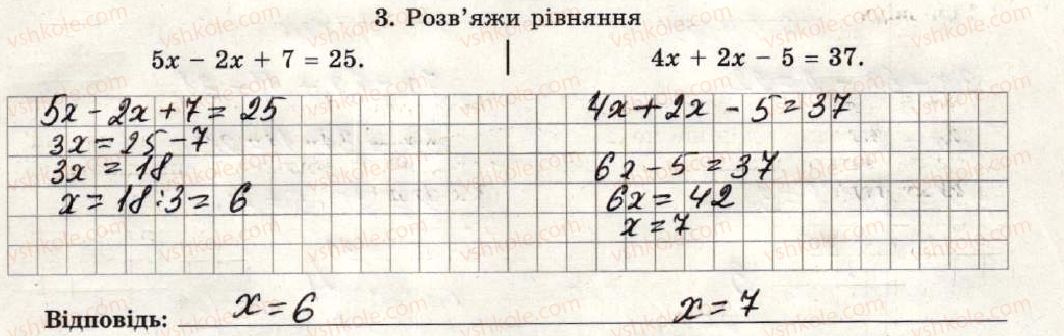 3. Розв’яжи рівняння
5x − 2x + 7 = 25.
4x + 2x − 5 = 37.
5x - 2x + 7 = 25
3x = 25 - 7
3x = 18
x = 18 : 3 = 6
4x + 2x - 5 = 37
6x - 5 = 37
6x = 42
x = 7
Відповідь: x = 6
x = 7
vshkole.com